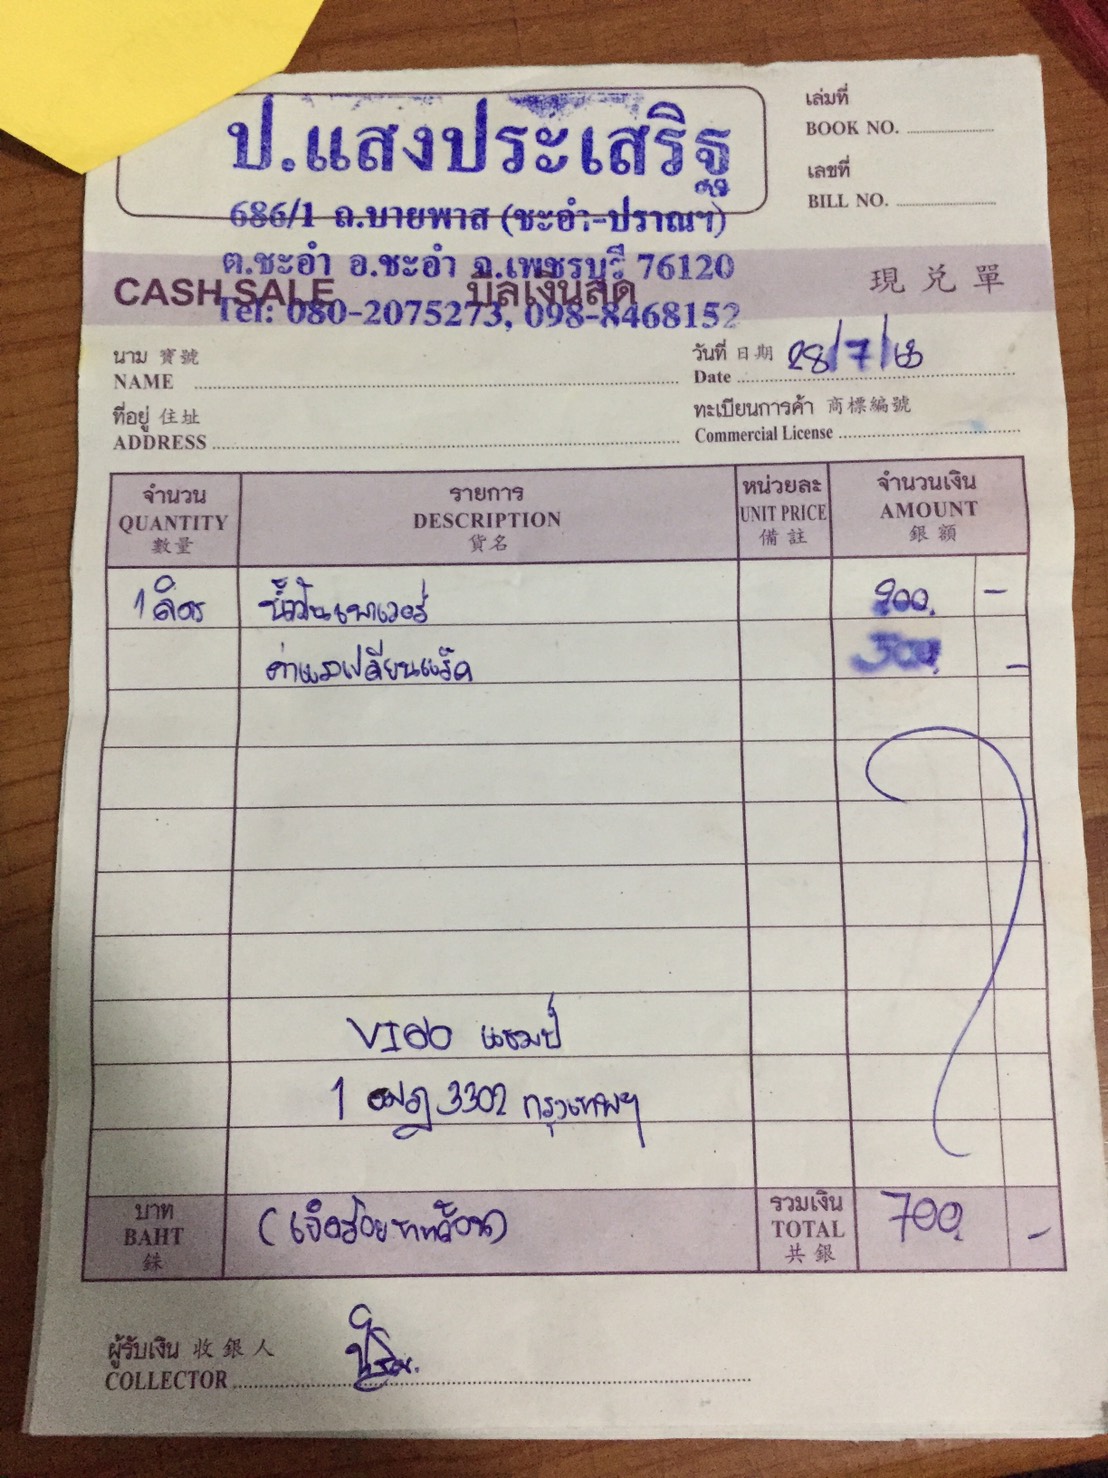 ป.แสงประเสริฐ
เล่มที่
BOOK NO.
เลขที่
BILL NO.
686/1 ถ.บายพาส (ชะอำ-ปราณฯ)
ต.ชะอำ อ.ชะอำ จ.เพชรบุรี 76120
CASH SALE บิลเงินสด 現兌單
Tel: 080-2075273, 098-8468152
นาม 寶號
NAME
วันที่ 日期
Date 28/7/
ที่อยู่ 住址
ADDRESS
ทะเบียนการค้า 商標編號
Commercial License
จำนวน รายการ หน่วยละ จำนวนเงิน
QUANTITY DESCRIPTION UNIT PRICE AMOUNT
數量 貨名 備註 銀額
1 ลิตร น้ำมันเพาเวอร์ -
ค่าแรงเปลี่ยนแร็ค -
VIGO แชมป์
1 3302 กรุงเทพฯ
บาท (เจ็ดร้อยบาทถ้วน) รวมเงิน 700 -
BAHT TOTAL
銖 共銀
ผู้รับเงิน 收銀人
COLLECTOR